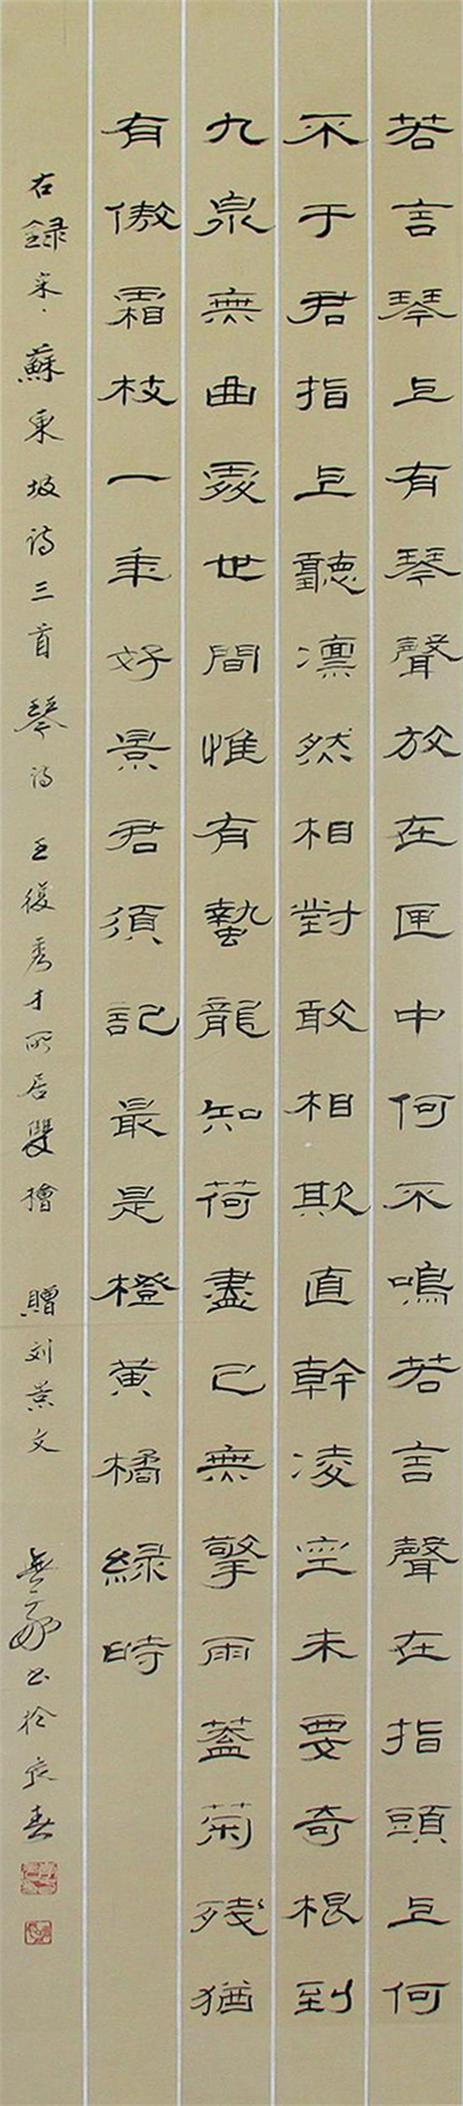 若言琴上有琴聲放在匣中何不鳴若言聲在指頭上何
不于君指上聽凛然相對敢相欺直幹凌空未要奇根到
九泉無曲處世間惟有蟄龍知荷盡已無擎雨蓋菊殘猶
有傲霜枝一年好景君須記最是橙黄橘緑時
右録宋·蘇東坡诗三首 琴诗 王復秀才所居雙檜 贈刘景文 书於春